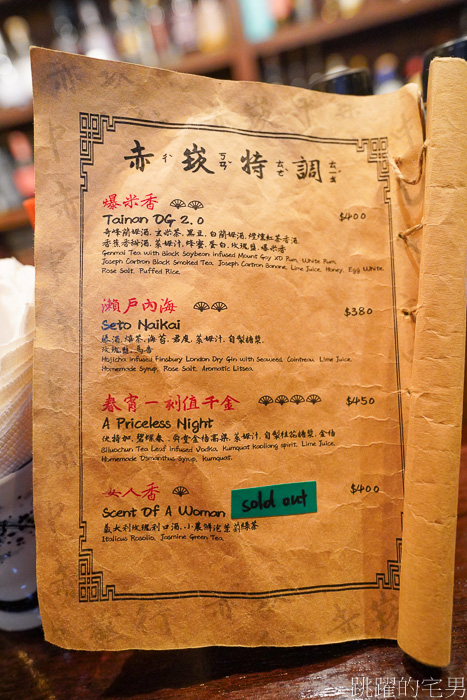 赤崁特調
ㄔˋ ㄎㄢˇ ㄊㄜˋ ㄊㄧㄠˊ
爆米香
$400
Tainan OG 2.0
奇峰蘭姆酒,玄米茶,黑豆,白蘭姆酒,煙燻紅茶香酒
香蕉香甜酒,萊姆汁,蜂蜜,蛋白,玫瑰鹽,爆米香
Genmai Tea with Black Soybean infused Mount Gay XO Rum, White Rum,
Joseph Cartron Black Smoked Tea, Joseph Cartron Banane, Lime Juice, Honey, Egg White,
Rose Salt, Puffed Rice.
瀨戶內海
$380
Seto Naikai
琴酒,焙茶,海苔,君度,萊姆汁,自製糖漿,
玫瑰鹽,馬告
Hojicha infused Finsbury London Dry Gin with Seaweed, Cointreau, Lime Juice,
Homemade Syrup, Rose Salt, Aromatic Litsea.
春宵一刻值千金
$450
A Priceless Night
伏特加,碧螺春,舜堂金桔高粱,萊姆汁,自製桂花糖漿,金桔
Biluochun Tea Leaf infused Vodka, Kumquat Kaoliang spirit, Lime Juice,
Homemade Osmanthus Syrup, Kumquat.
女人香
sold out
$400
Scent Of A Woman
義大利玫瑰利口酒,小農鮮泡茉莉綠茶
Italicus Rosolio, Jasmine Green Tea.
跳躍的宅男